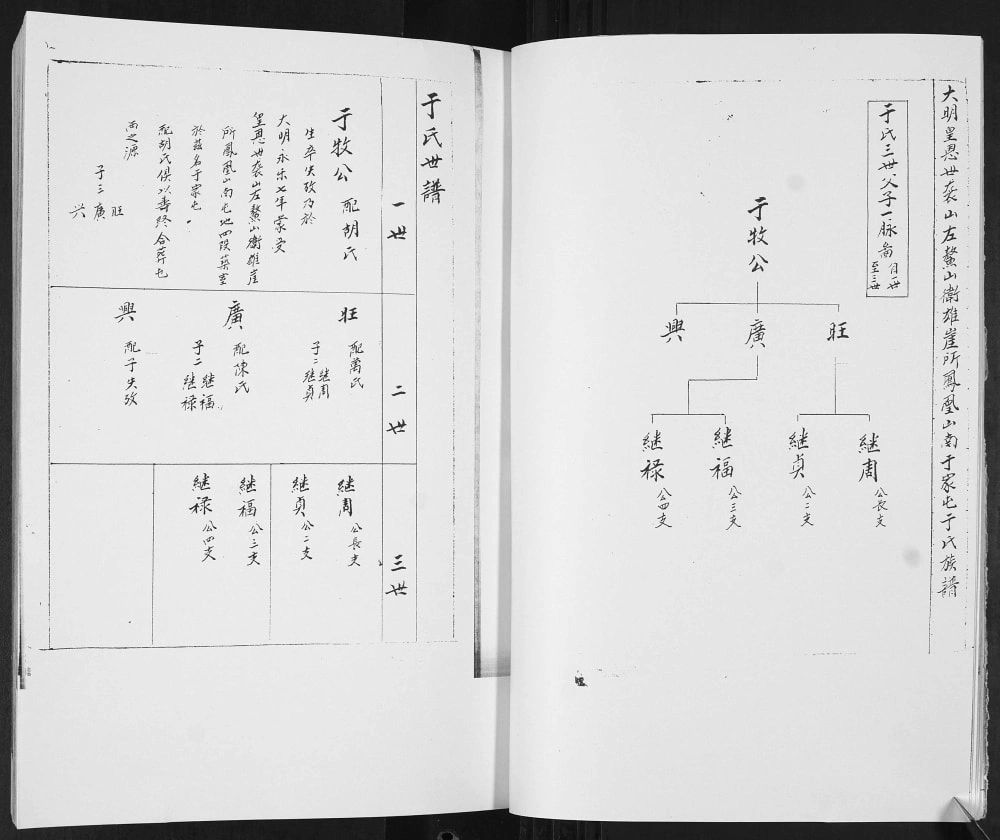 大明皇恩世袭山左鰲山衛雄崖所鳳凰山南于家屯于氏族譜
于氏三世父子一脉啚
自一世
至三世
于牧公
旺
廣
興
継周
公長支
継貞
公二支
継福
公三支
継禄
公四支
于氏世譜
一世
于牧公 配胡氏
生卒失攷乃於
大明永乐七年蒙受
皇恩世袭山左鰲山衛雄崖
所鳳凰山南屯地四段築室
於兹名于家屯
配胡氏俱以壽終合葬屯
西之源
子三
旺
廣
兴
二世
旺
配萬氏
子二継周
継貞
廣
配陳氏
継福
子二継禄
興
配子失攷
三世
継周
公長支
継貞
公二支
継福
公三支
継禄
公四支